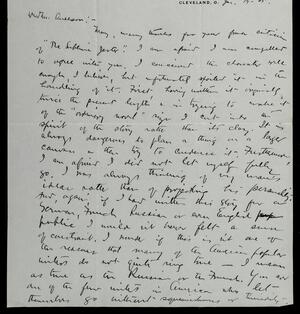 CLEVELAND, O.
My dear Anderson: -
Many, many thanks for your fine criticism
of "The Sublime Jester". I am afraid I am compelled
to agree with you. I conceived the character well
enough, I believe, but unfortunately spoiled it in the
handling of it. First, having written it originally
twice the present length & in trying to make it
of the ordinary novel size I cut into the
spirit of the story rather than its clay. It is
always dangerous to plan a thing on a large
canvas & then try to condense it. Furthermore,
I am afraid I did not let myself fully
go. I was always thinking of my
rather than of projecting his personality.
Then, again, if I had written this story for a
German, French, Russian or even English
public I would have never felt a sense
of constraint. I wonder if this is not one of
the reasons that many of the American
writers do not quite ring true. I mean
as true as the Russian or the French. You are
one of the few writers in America who let
themselves go without squeamishness or timidity-